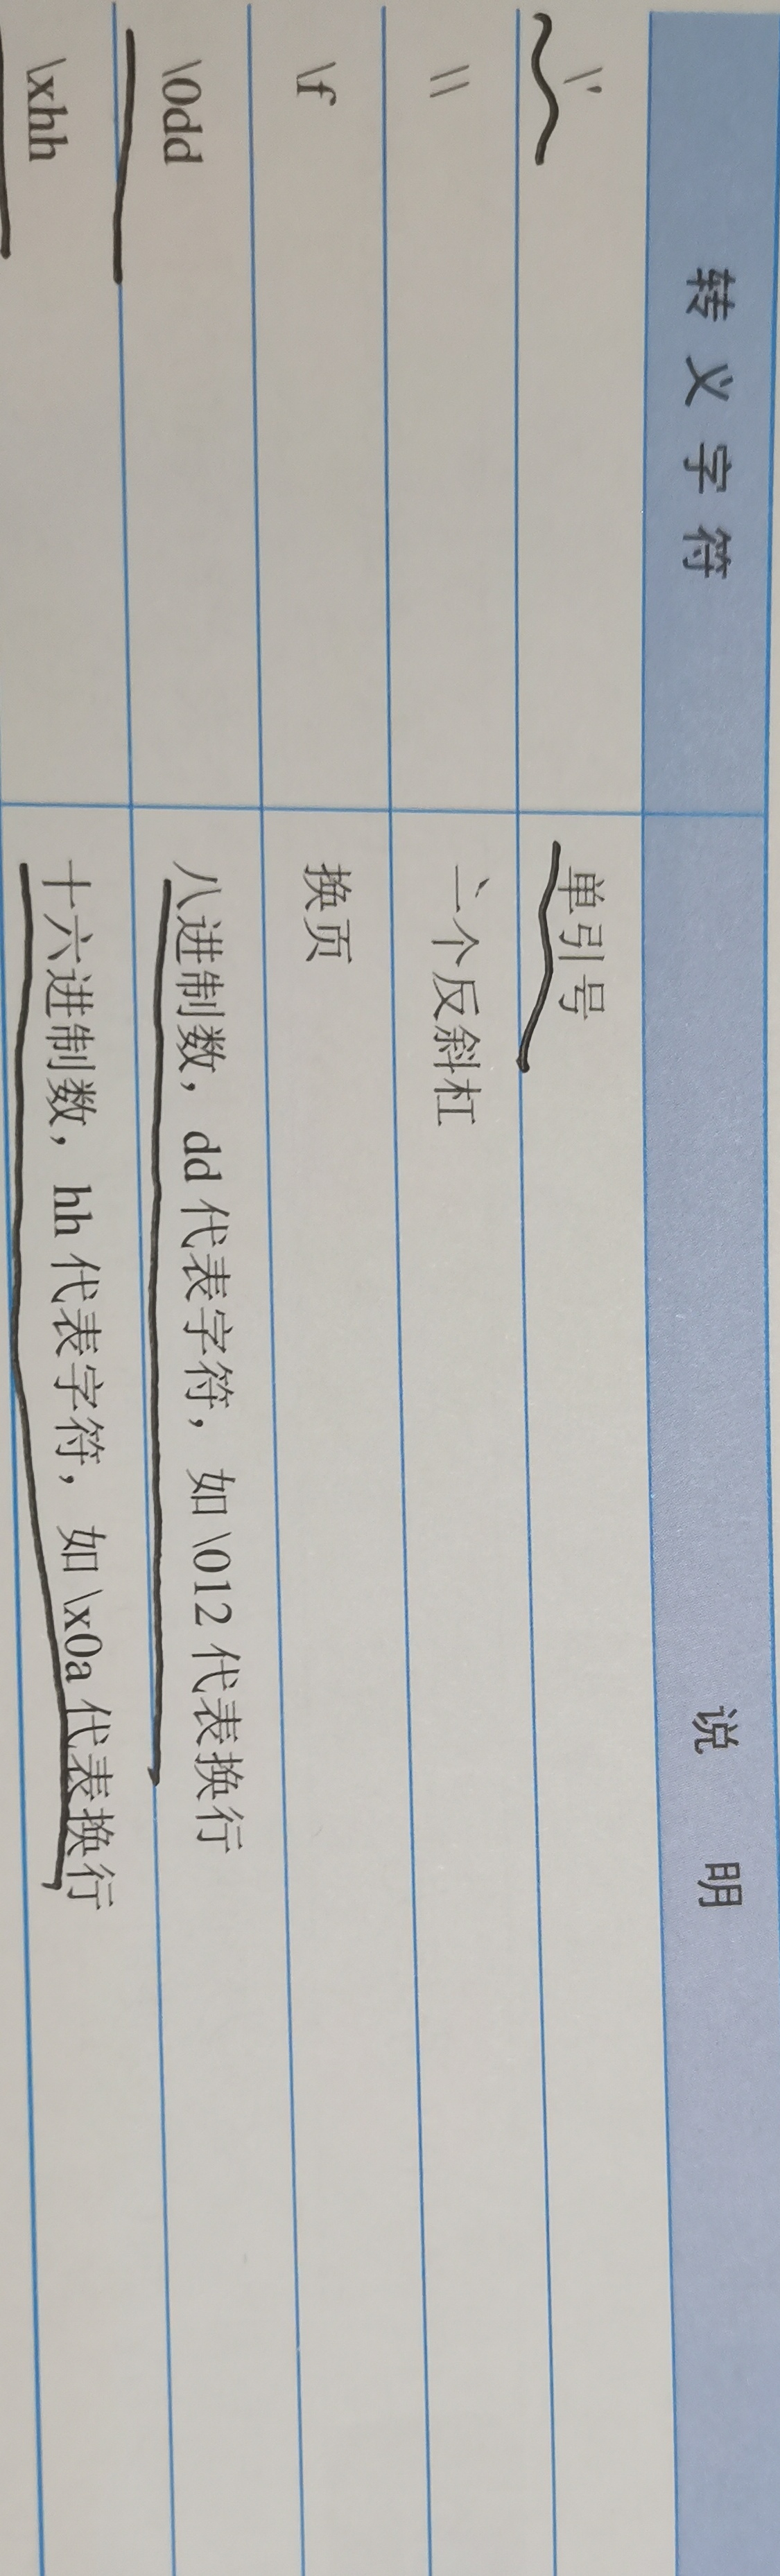 转义字符 说明
\' 单引号
\\ 一个反斜杠
\f 换页
\0dd 八进制数，dd 代表字符，如 \012 代表换行
\xhh 十六进制数，hh 代表字符，如 \x0a 代表换行